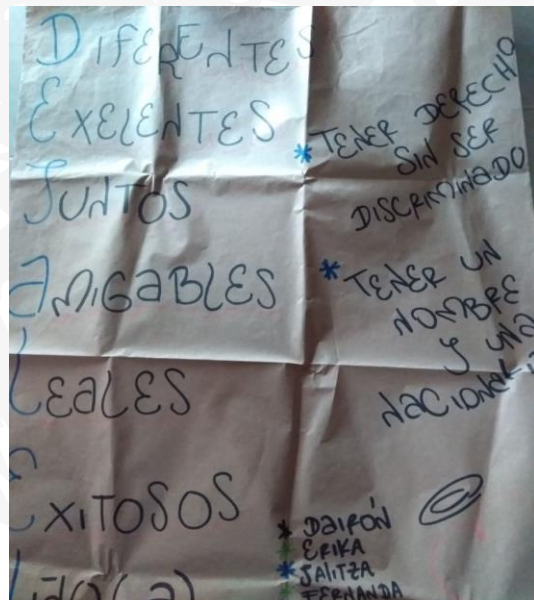 DIFERENTES
EXELENTES
JUNTOS
AMIGABLES
LEALES
EXITOSOS
* TENER DERECHO
SIN SER
DISCRIMINADO
* TENER UN
NOMBRE
Y UNA
* DAIRON
* ERIKA
* JALITZA
* FERNANDA